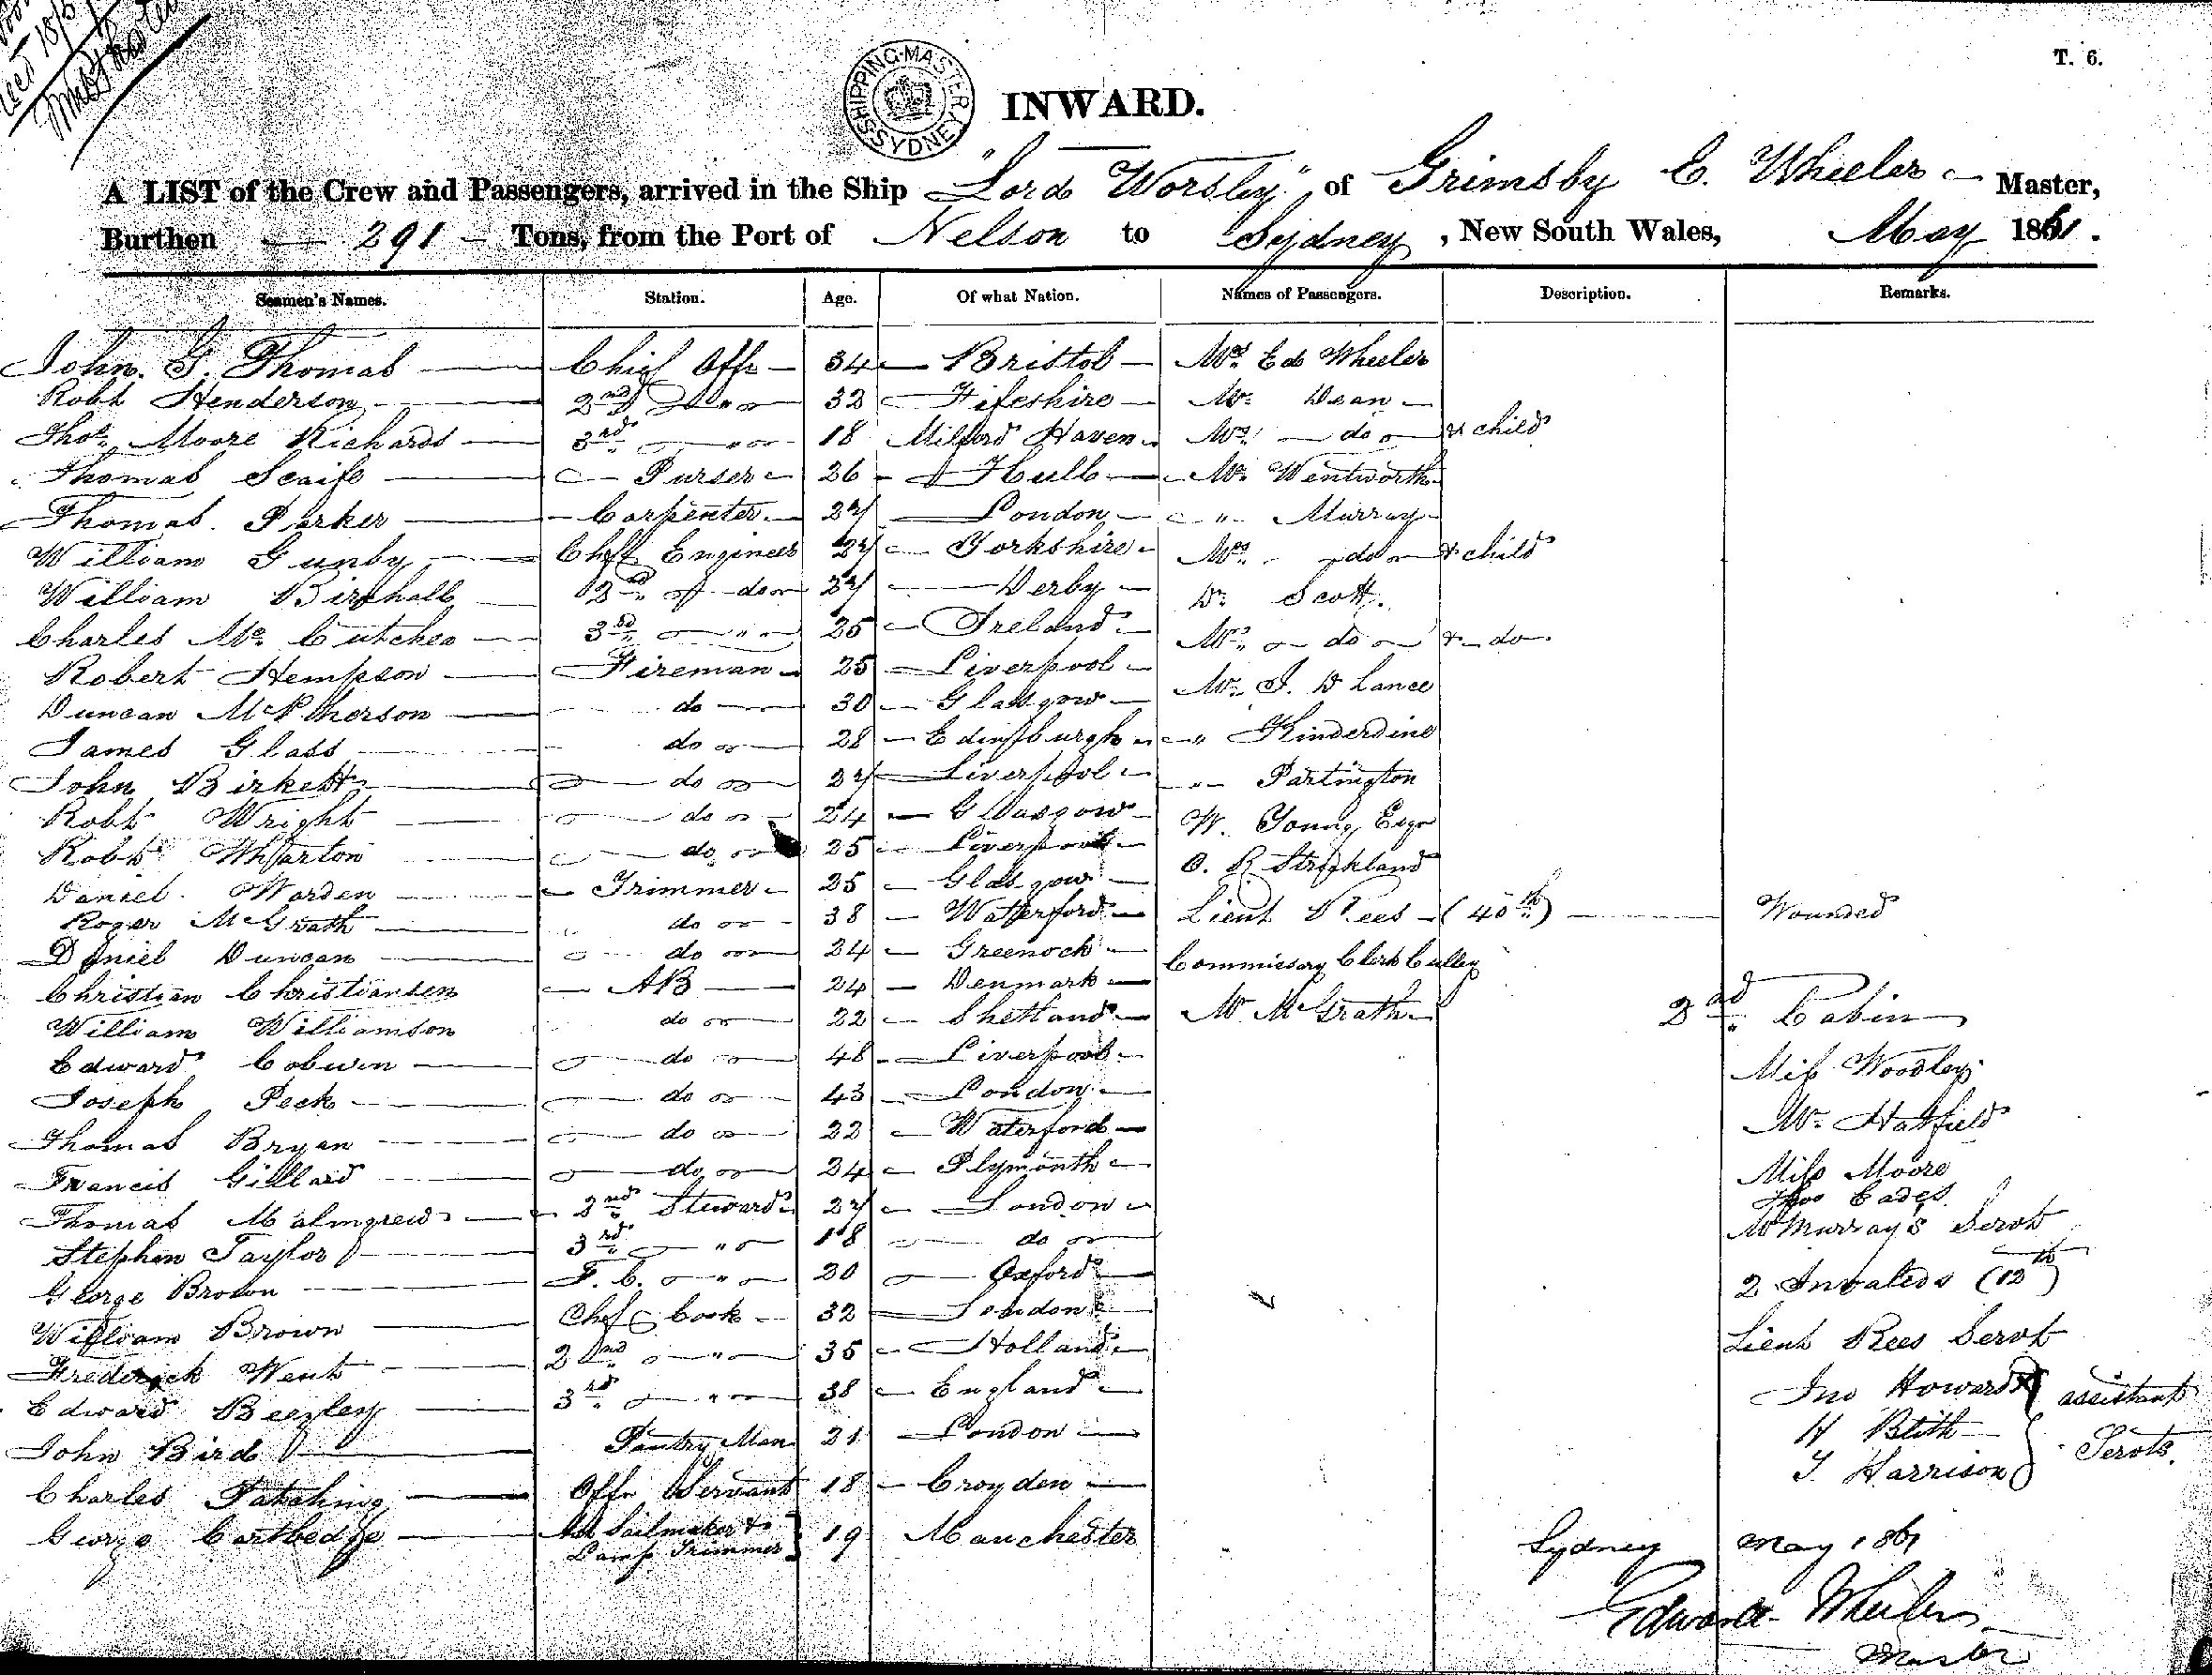 T. 6.
SHIPPING·MASTER SYDNEY
INWARD.
A LIST of the Crew and Passengers, arrived in the Ship "Lord Worsley" of Grimsby E. Wheeler Master,
Burthen 291 Tons, from the Port of Nelson to Sydney, New South Wales, May 1861.
Seamen's Names. Station. Age. Of what Nation. Names of Passengers. Description. Remarks.
John. G. Thomas Chief Offr 34 Bristol Mrs. Ed Wheeler
Robt Henderson 2nd do 32 Fifeshire Mr. Dean
Thos. Moore Richards 3rd " 18 Milford Haven Mrs. do & child
Thomas Scaife Purser 26 Hull Mr. Wentworth
Thomas. Parker Carpenter 27 London " Murray
William Gunby Chf Engineer 27 Yorkshire Mrs. do & child
William Birchall 2nd do 27 Derby Dr. Scott.
Charles Mc. Cutcheo 3rd " 25 Ireland Mrs. do & do.
Robert Hempson Fireman 25 Liverpool Mr. J. D Lance
Duncan McPherson do 30 Glasgow
James Glass do 28 Edinburgh " Kinderdine
John Birkett do 27 Liverpool " Partington
Robt Wright do 24 Glasgow W. Young Esqr
Robt Wharton do 25 Liverpool C. R Strickland
Daniel. Warden Trimmer 25 Glasgow
Roger McGrath do 38 Waterford Lieut Rees (40th) Wounded
Daniel Duncan do 24 Greenock Commissary Clerk Culley
Christian Christiansen AB 24 Denmark
William Williamson do 22 Shetland Mr. McGrath 2nd Cabin
Edward Colwin do 48 Liverpool
Joseph Peck do 43 London Miss Woodley
Thomas Bryan do 22 Waterford Mr. Hatfield
Francis Gillard do 24 Plymouth Miss Moore
Thomas Malmgreid 2nd Steward 27 London Eades
Stephen Taylor 3rd " 18 do Mr Murray's Servt
George Brown F. C. " 20 Oxford 2 Invalids (12th)
William Brown Chf Cook 32 London
Frederick Went 2nd " 35 Holland Lieut Rees Servt
Edward Beezley 3rd " 38 England Jno Howard assistant
John Bird Pantry Man 21 London H Blith
Charles Patching Offr Servant 18 Croyden J Harrison Servts.
George Cartledge Sailmaker & Lamp Trimmer 19 Manchester
Sydney May 1861
Edward Wheeler
Master